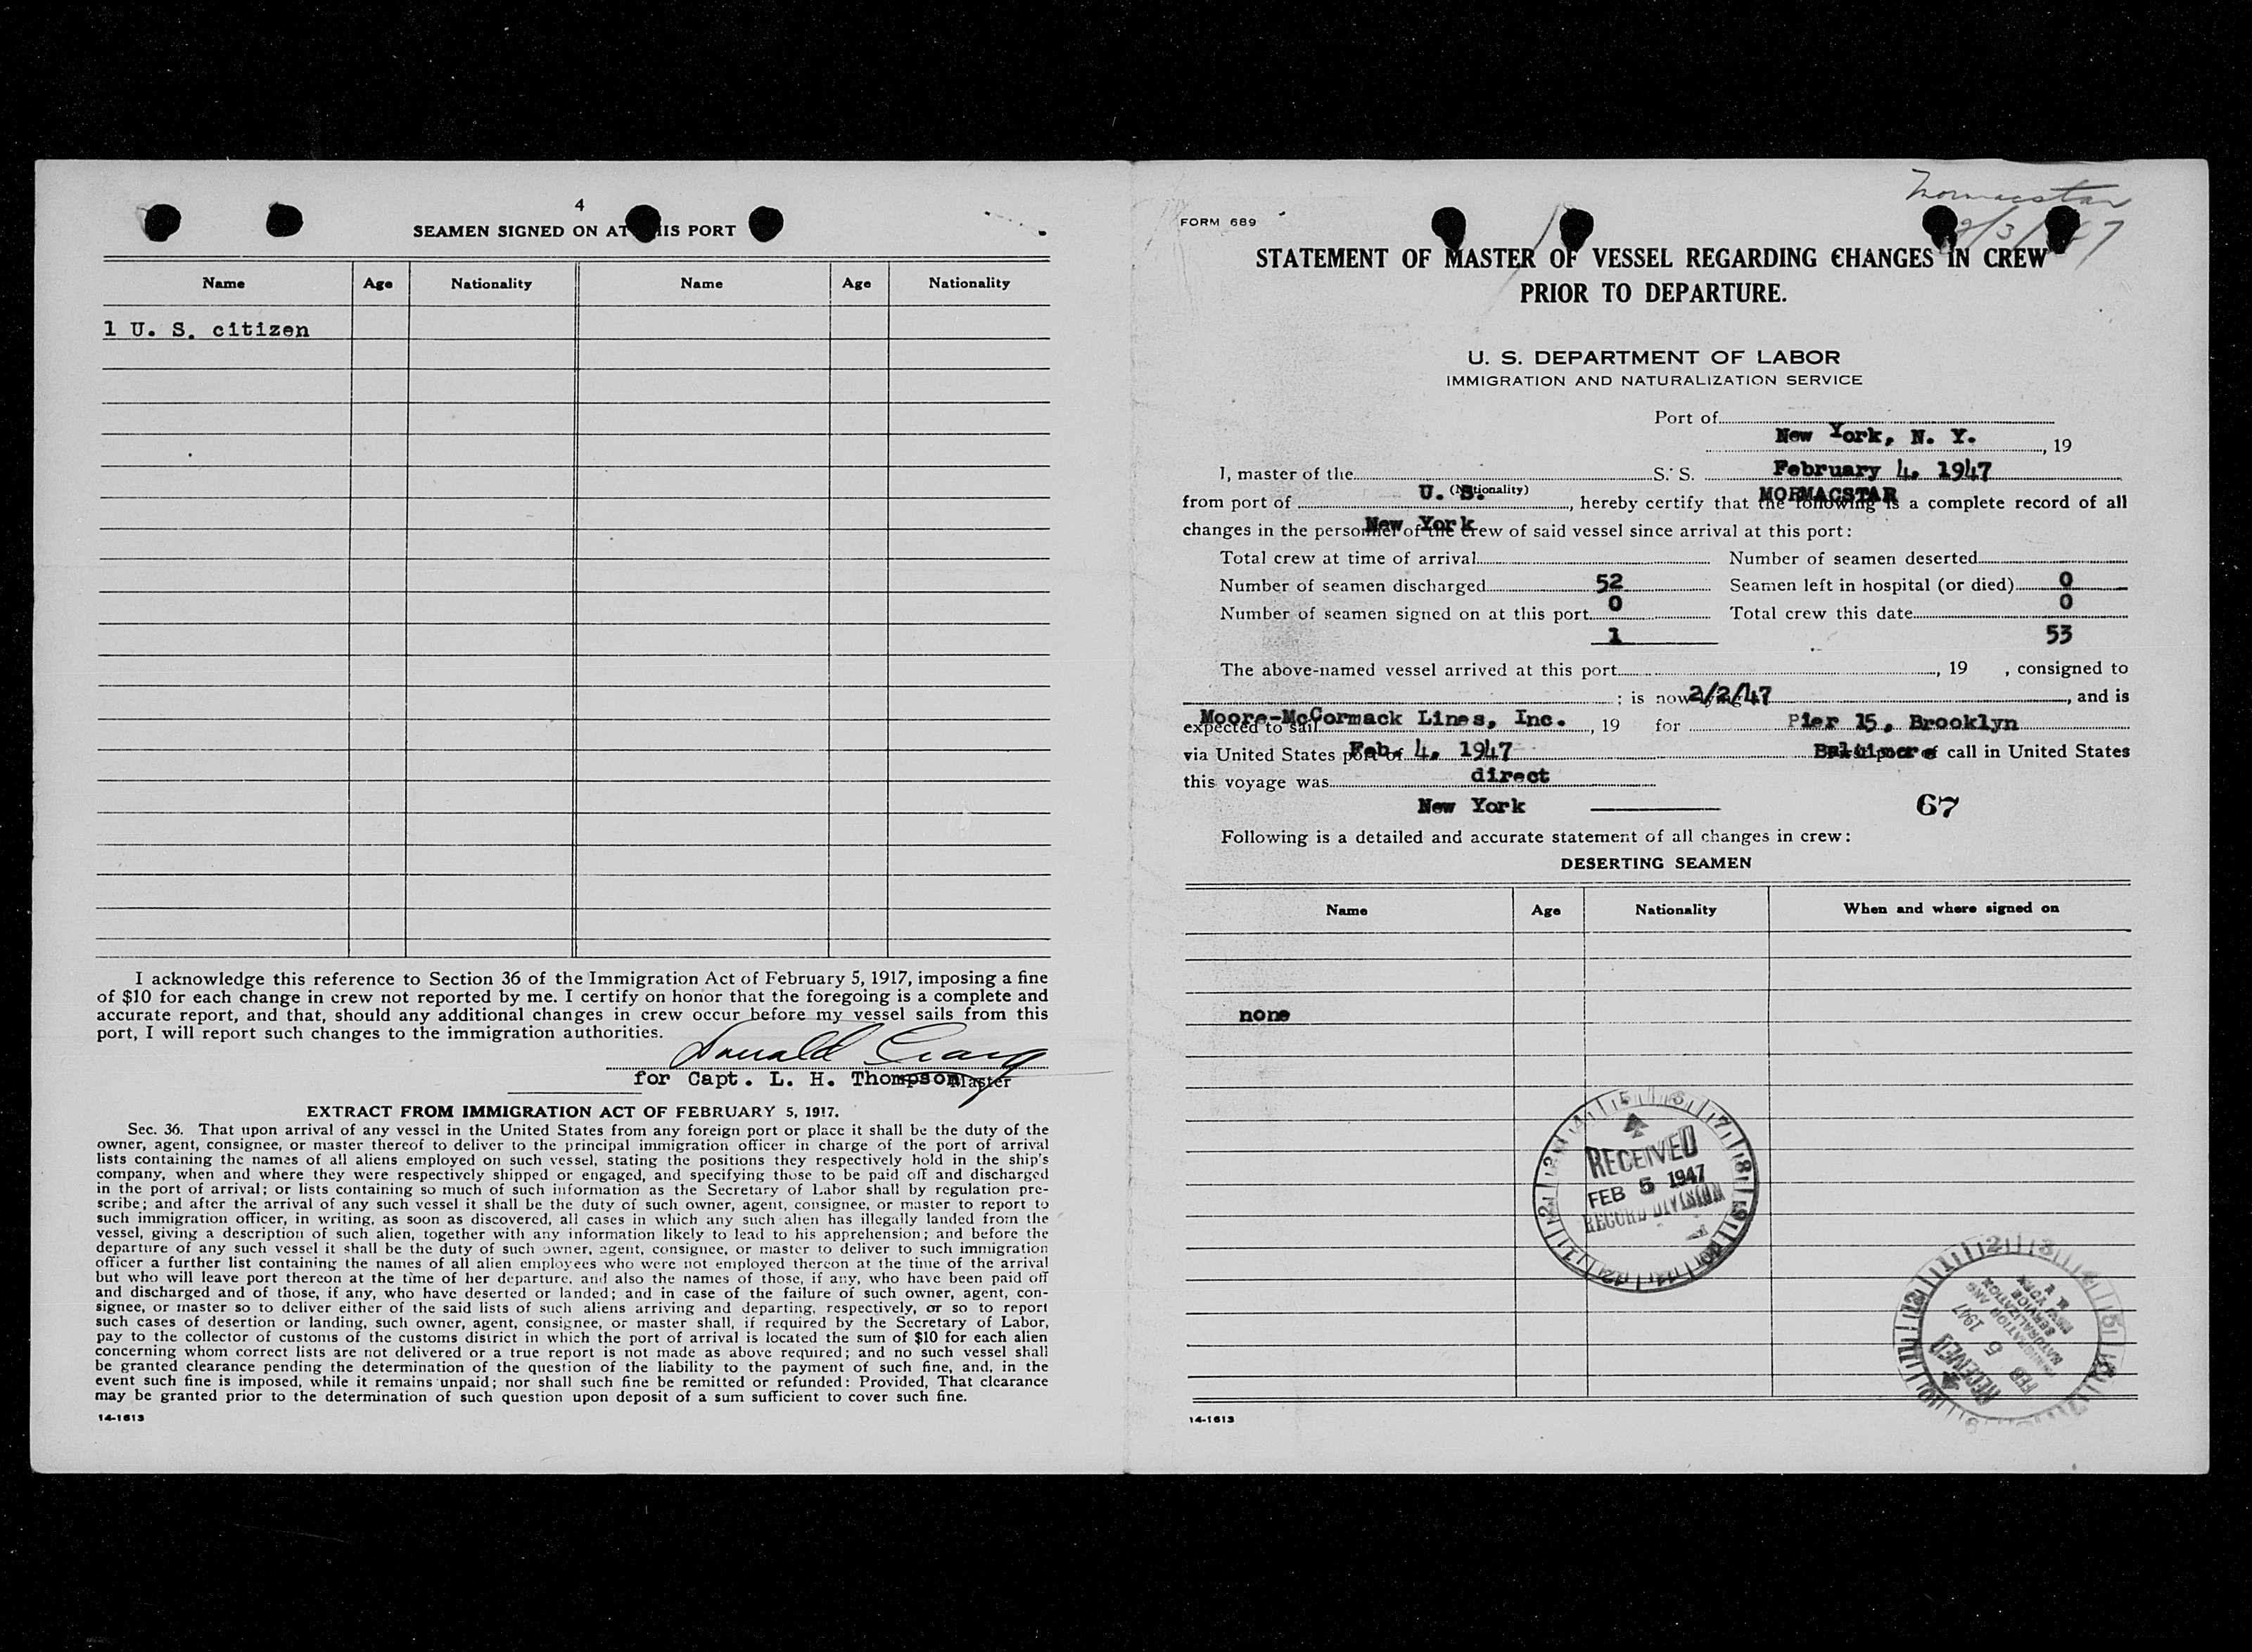 4
SEAMEN SIGNED ON AT THIS PORT
Name Age Nationality Name Age Nationality
1 U. S. citizen
I acknowledge this reference to Section 36 of the Immigration Act of February 5, 1917, imposing a fine
of $10 for each change in crew not reported by me. I certify on honor that the foregoing is a complete and
accurate report, and that, should any additional changes in crew occur before my vessel sails from this
port, I will report such changes to the immigration authorities.
Donald Craig
for Capt. L. H. Thompson Master
EXTRACT FROM IMMIGRATION ACT OF FEBRUARY 5, 1917.
Sec. 36. That upon arrival of any vessel in the United States from any foreign port or place it shall be the duty of the
owner, agent, consignee, or master thereof to deliver to the principal immigration officer in charge of the port of arrival
lists containing the names of all aliens employed on such vessel, stating the positions they respectively hold in the ship's
company, when and where they were respectively shipped or engaged, and specifying those to be paid off and discharged
in the port of arrival; or lists containing so much of such information as the Secretary of Labor shall by regulation pre-
scribe; and after the arrival of any such vessel it shall be the duty of such owner, agent, consignee, or master to report to
such immigration officer, in writing, as soon as discovered, all cases in which any such alien has illegally landed from the
vessel, giving a description of such alien, together with any information likely to lead to his apprehension; and before the
departure of any such vessel it shall be the duty of such owner, agent, consignee, or master to deliver to such immigration
officer a further list containing the names of all alien employees who were not employed thereon at the time of the arrival
but who will leave port thereon at the time of her departure, and also the names of those, if any, who have been paid off
and discharged and of those, if any, who have deserted or landed; and in case of the failure of such owner, agent, con-
signee, or master so to deliver either of the said lists of such aliens arriving and departing, respectively, or so to report
such cases of desertion or landing, such owner, agent, consignee, or master shall, if required by the Secretary of Labor,
pay to the collector of customs of the customs district in which the port of arrival is located the sum of $10 for each alien
concerning whom correct lists are not delivered or a true report is not made as above required; and no such vessel shall
be granted clearance pending the determination of the question of the liability to the payment of such fine, and, in the
event such fine is imposed, while it remains unpaid; nor shall such fine be remitted or refunded: Provided, That clearance
may be granted prior to the determination of such question upon deposit of a sum sufficient to cover such fine.
14-1613
Mormacstar
2/3/47
FORM 689
STATEMENT OF MASTER OF VESSEL REGARDING CHANGES IN CREW
PRIOR TO DEPARTURE.
U. S. DEPARTMENT OF LABOR
IMMIGRATION AND NATURALIZATION SERVICE
Port of
New York, N. Y.
, 19
I, master of the S. S. February 4, 1947
U. S. (Nationality) MORMACSTAR
from port of , hereby certify that the following is a complete record of all
New York
changes in the personnel of the crew of said vessel since arrival at this port:
Total crew at time of arrival Number of seamen deserted
Number of seamen discharged 52 Seamen left in hospital (or died) 0
Number of seamen signed on at this port 0 Total crew this date 0
1 53
The above-named vessel arrived at this port , 19 , consigned to
; is now lying at 2/2/47 , and is
Moore-McCormack Lines, Inc. Pier 15, Brooklyn
expected to sail , 19 for
via United States port of Feb. 4, 1947 Baltimore call in United States
this voyage was direct
New York 67
Following is a detailed and accurate statement of all changes in crew:
DESERTING SEAMEN
Name Age Nationality When and where signed on
none
RECEIVED
FEB 5 1947
RECORD DIVISION
RECEIVED
FEB 5 1947
14-1613